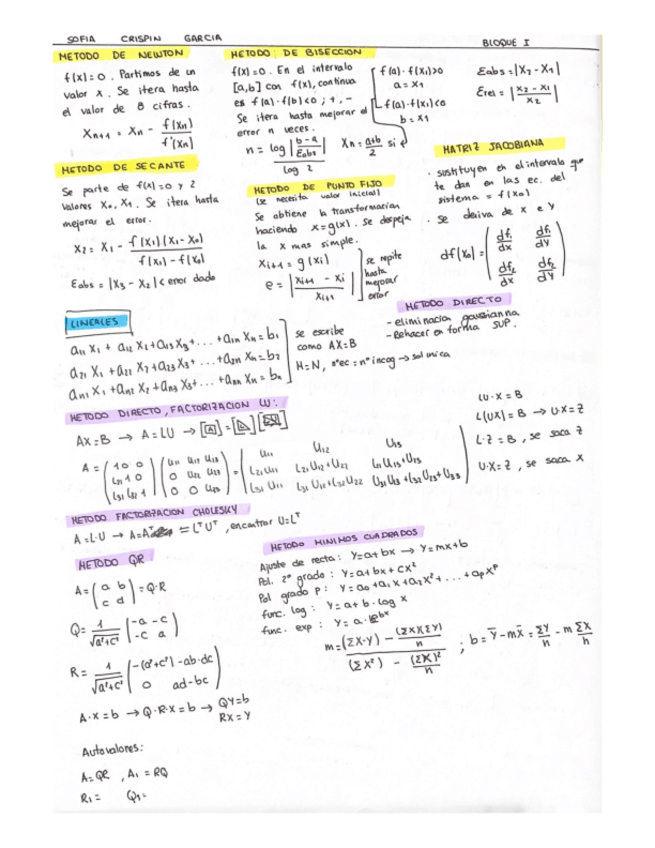 SOFIA CRISPIN GARCIA
BLOQUE I
METODO DE NEWTON
f(x)=0. Partimos de un
valor x. Se itera hasta
el valor de 8 cifras.
Xn+1 = Xn - f(Xn)/f'(Xn)
METODO DE BISECCION
f(x)=0. En el intervalo
[a,b] con f(x), continua
es f(a)·f(b)<0 ; +, -
Se itera hasta mejorar el
error n veces.
n = log |b-a/Eabs| / log 2
Xn = a+b/2 si
f(a)·f(x1)>0
a = x1
f(a)·f(x1)<0
b = x1
Eabs = |X2 - X1|
Erel = |x2 - x1/x2|
METODO DE SECANTE
Se parte de f(x)=0 y 2
valores X0, X1. Se itera hasta
mejorar el error.
X2 = X1 - f(X1)(X1-X0)/f(X1) - f(X0)
Eabs = |X3 - X2| < error dado
METODO DE PUNTO FIJO
(se necesita valor inicial)
Se obtiene la transformacion
haciendo x=g(x). Se despeja
la x mas simple.
Xi+1 = g(xi)
e = |Xi+1 - Xi/Xi+1|
se repite
hasta
mejorar
error
MATRIZ JACOBIANA
· sustituyen en el intervalo que
te dan en las ec. del
sistema = f(X0)
· Se deriva de x e y
df(X0) = (df1/dx df1/dy
df2/dx df2/dy)
METODO DIRECTO
- eliminacion gaussianna
- Rehacer en forma SUP.
LINEALES
a11 X1 + a12 X2 + a13 X3 + ... + a1n Xn = b1
a21 X1 + a22 X2 + a23 X3 + ... + a2n Xn = b2
an1 X1 + an2 X2 + an3 X3 + ... + ann Xn = bn
se escribe
como AX=B
M=N, nºec = nº incog → sol unica
METODO DIRECTO, FACTORIZACION LU:
AX=B → A=LU → [A] = [L] [U]
A = (1 0 0
L21 1 0
L31 L32 1) (U11 U12 U13
0 U22 U23
0 0 U33) = (U11 U12 U13
L21U11 L21U12+U22 L21U13+U23
L31U11 L31U12+L32U22 L31U13+L32U23+U33)
LU·X = B
L(UX) = B → U·X=Z
L·Z = B, se saca Z
U·X = Z, se saca X
METODO FACTORIZACION CHOLESKY
A=L·U → A=Aᵀ = LᵀUᵀ, encontrar U=Lᵀ
METODO QR
A = (a b
c d) = Q·R
Q = 1/√a²+c² (-a -c
-c a)
R = 1/√a²+c² (-(a²+c²) -ab-dc
0 ad-bc)
A·X = b → Q·R·X = b → QY=b
RX=Y
Autovalores:
A=QR , A1 = RQ
R1 = Q1=
METODO MINIMOS CUADRADOS
Ajuste de recta: Y=a+bx → Y=mx+b
Pol. 2º grado : Y=a+bx+cx²
Pol grado p : Y=a0+a1x+a2x²+...+apxᵖ
func. log : Y=a+b·log x
func. exp : Y=a·e^bx
m = (ΣX·Y) - (ΣX)(ΣY)/n / (ΣX²) - (ΣX)²/n ; b = Y̅ - mX̅ = ΣY/n - m ΣX/n